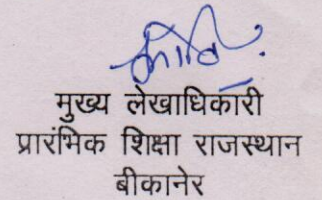 मुख्य लेखाधिकारी
प्रारंभिक शिक्षा राजस्थान
बीकानेर